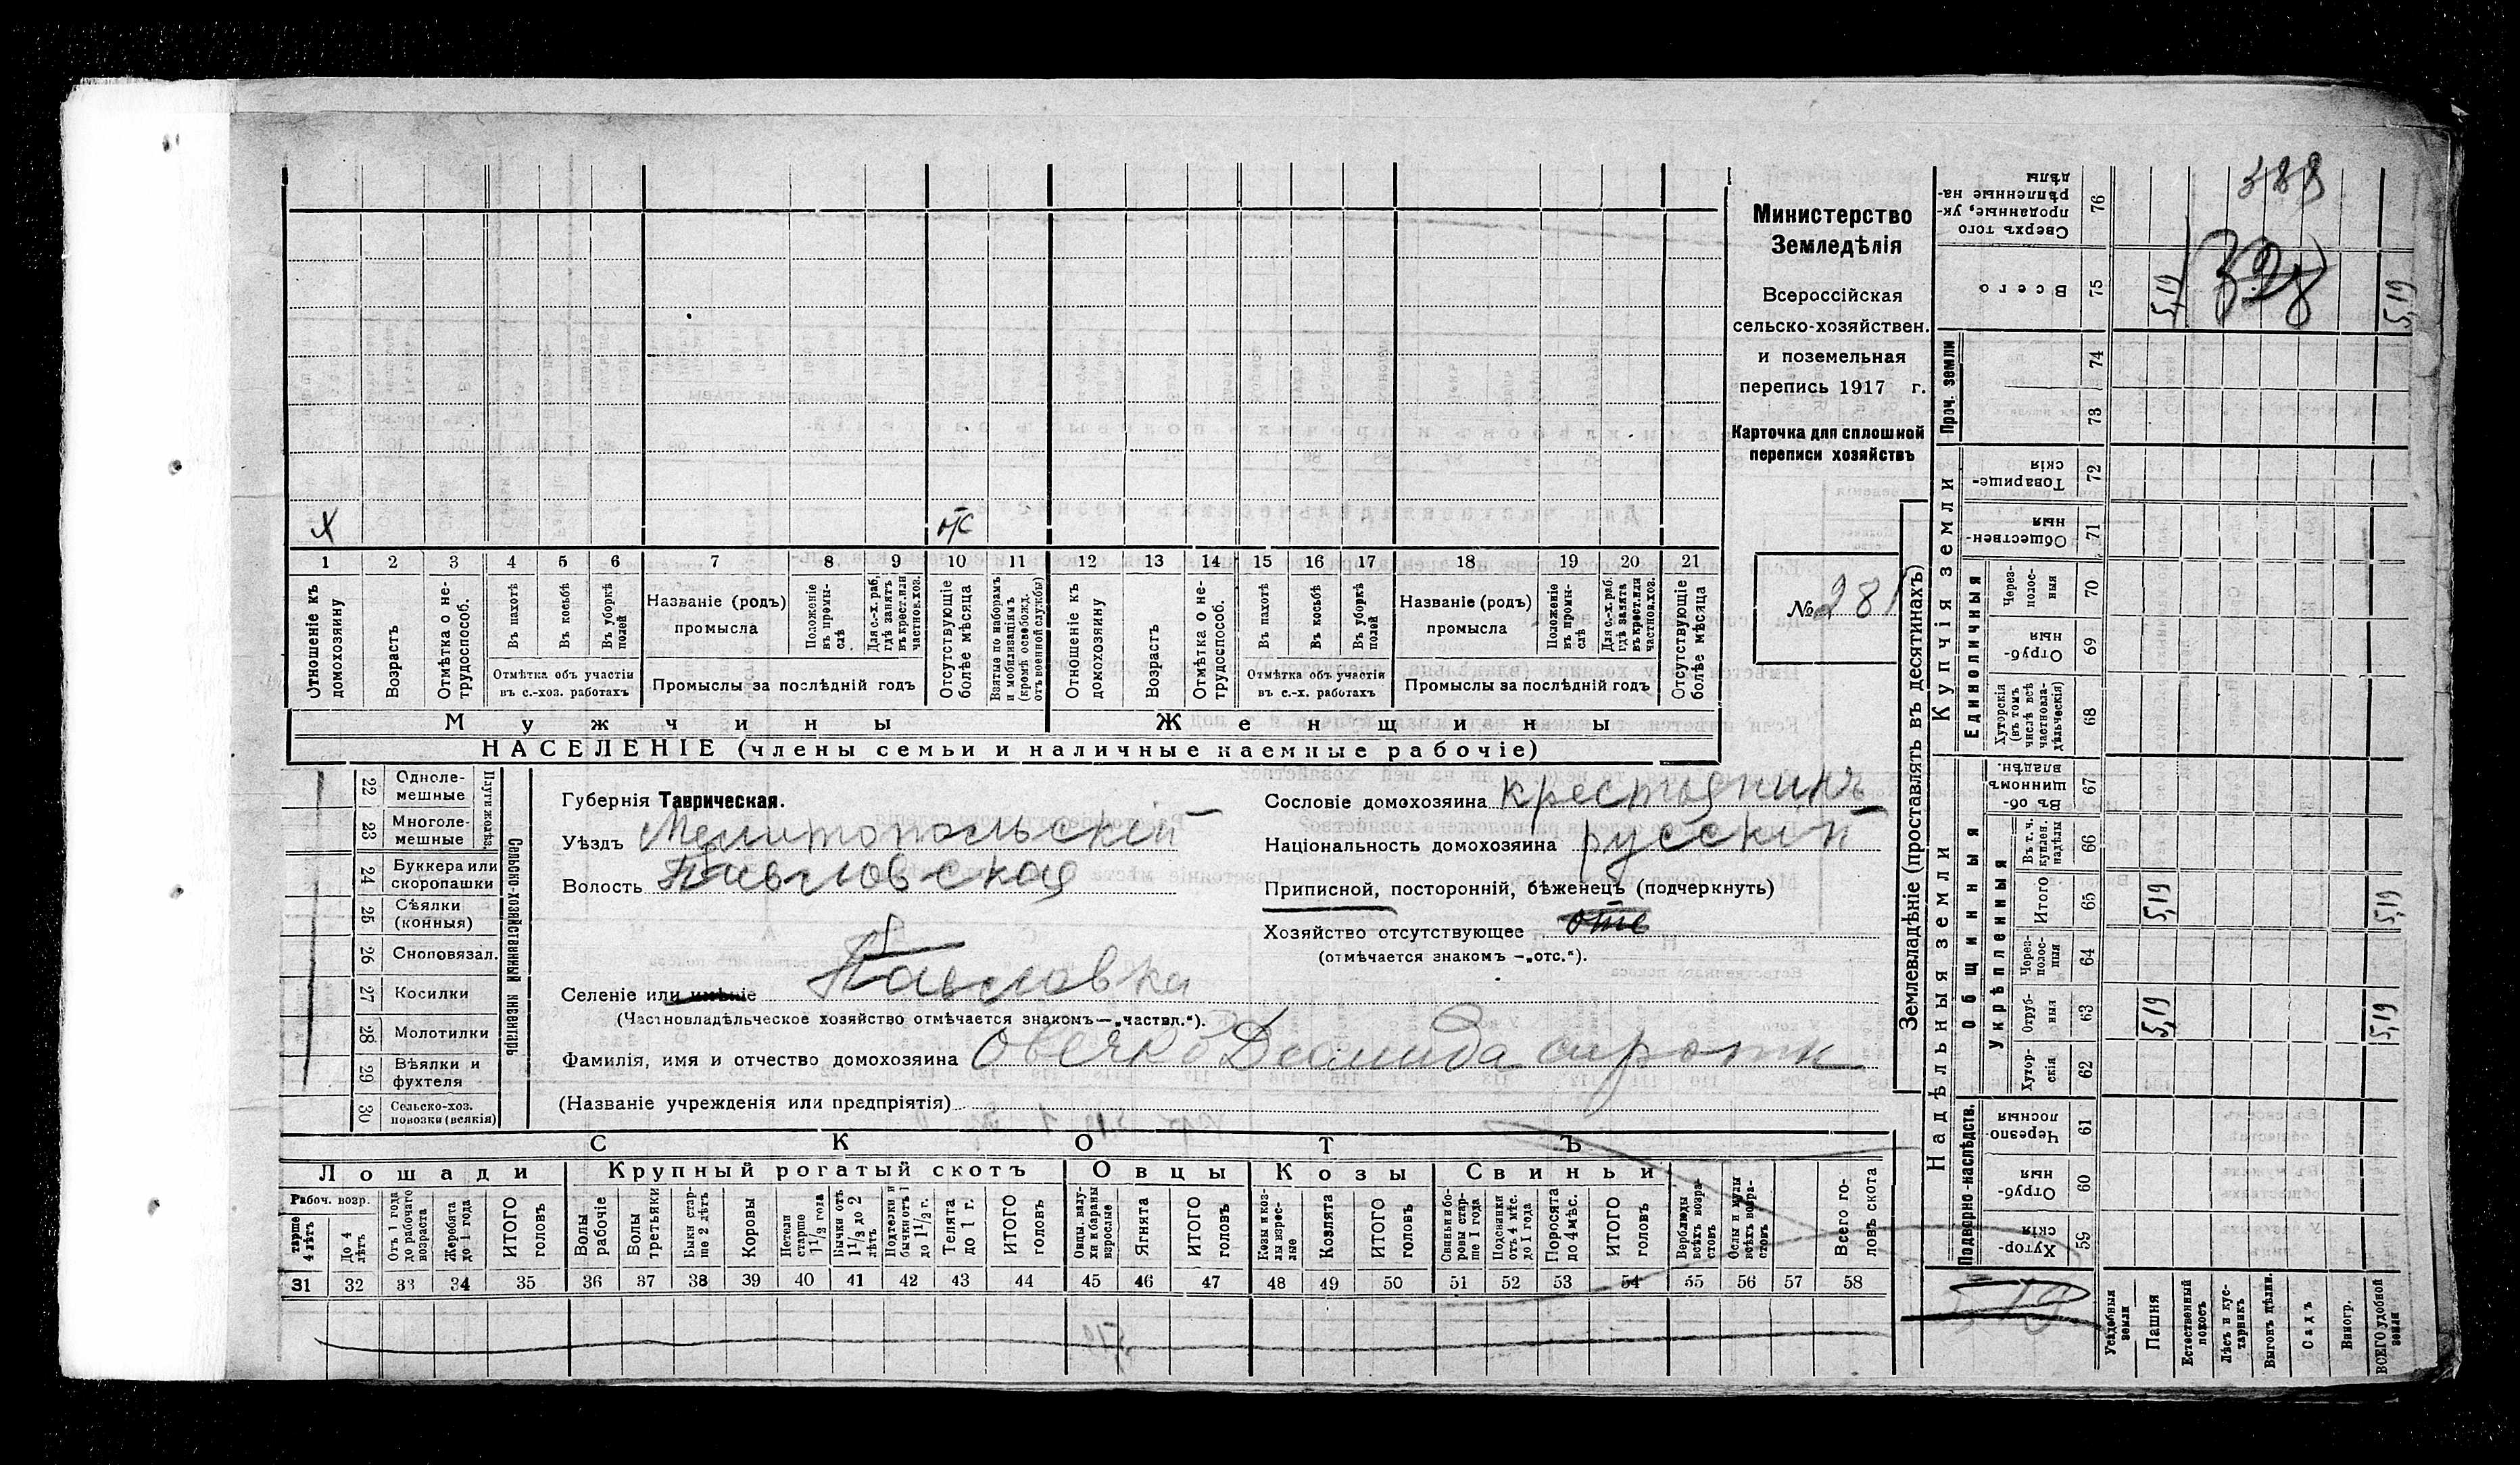 х отс
1 2 3 4 5 6 7 8 9 10 11 12 13 14 15 16 17 18 19 20 21
Отношеніе къ домохозяину
Возрастъ
Отмѣтка о не-трудоспособ.
Въ пахотѣ
Въ косьбѣ
Въ уборкѣ полей
Отмѣтка объ участіи въ с.-хоз. работахъ
Названіе (родъ) промысла
Положеніе въ промы-слѣ
Для с.-х. раб. гдѣ занятъ въ крест. или частнов. хоз.
Промыслы за послѣдній годъ
Отсутствующіе болѣе мѣсяца
Взятые по наборамъ и мобилизаціямъ (кромѣ освобожд. отъ военной службы)
Отношеніе къ домохозяину
Возрастъ
Отмѣтка о не-трудоспособ.
Въ пахотѣ
Въ косьбѣ
Въ уборкѣ полей
Отмѣтка объ участіи въ с.-х. работахъ
Названіе (родъ) промысла
Положеніе въ промы-слѣ
Для с.-х. раб. гдѣ занята въ крест. или частнов. хоз.
Промыслы за послѣдній годъ
Отсутствующіе болѣе мѣсяца
Мужчины Женщины
НАСЕЛЕНІЕ (члены семьи и наличные наемные рабочіе)
Министерство
Земледѣлія
Всероссійская
сельско-хозяйствен.
и поземельная
перепись 1917 г.
Карточка для сплошной
переписи хозяйствъ
№ 281
22 Одноле-мешные
23 Многоле-мешные
Плуги желѣз.
24 Буккера или скоропашки
25 Сѣялки (конныя)
26 Сноповязал.
27 Косилки
28 Молотилки
29 Вѣялки и фухтеля
30 Сельско-хоз. повозки (всякія)
Сельско-хозяйственный инвентарь
Губернія Таврическая.
Уѣздъ Мелитопольскій
Волость Павловская
Селеніе или имѣніе Павловка
(Частновладѣльческое хозяйство отмѣчается знакомъ—„частвл.“).
Сословіе домохозяина крестьянинъ
Національность домохозяина русскій
Приписной, посторонній, бѣженецъ (подчеркнуть)
Хозяйство отсутствующее отс
(отмѣчается знакомъ —„отс.“).
Фамилія, имя и отчество домохозяина Овечко Демида сироти
(Названіе учрежденія или предпріятія)
СКОТЪ
Лошади Крупный рогатый скотъ Овцы Козы Свиньи
Рабоч. возр.
тарше 4 лѣтъ
До 4 лѣтъ
Отъ 1 года до рабочаго возраста
Жеребята до 1 года
ИТОГО головъ
Волы рабочіе
Волы третьяки
Быки стар-ше 2 лѣтъ
Коровы
Нетели старше 1½ года
Бычки отъ 1½ до 2 лѣтъ
Подтелки и бычки отъ 1 до 1½ г.
Телята до 1 г.
ИТОГО головъ
Овцы, валу-хи и бараны взрослые
Ягнята
ИТОГО головъ
Козы и коз-лы взрос-лые
Козлята
ИТОГО головъ
Свиньи и бо-ровы стар-ше 1 года
Подсвинки отъ 4 мѣс. до 1 года
Поросята до 4 мѣс.
ИТОГО головъ
Верблюды всѣхъ возра-стовъ
Ослы и мулы всѣхъ возра-стовъ
Всего го-ловъ скота
31 32 33 34 35 36 37 38 39 40 41 42 43 44 45 46 47 48 49 50 51 52 53 54 55 56 57 58
Землевладѣніе (проставлять въ десятинахъ)
Надѣльныя земли
Купчія земли
Проч. земли
Подворно-наслѣдств.
Общинныя
Укрѣпленныя
Единоличныя
Сверхъ того проданные, ук-рѣпленные на-дѣлы 76
Всего 75 5,19 5,19
74
73
Товарище-скія 72
Обществен-ныя 71
Через-полос-ныя 70
Отруб-ныя 69
Хуторскія (въ томъ числѣ всѣ частновла-дѣльческія) 68
Въ об-щинномъ владѣн. 67
Въ т. ч. куплен. надѣлы 66
Итого 65 5,19 5,19
Через-полос-ныя 64
Отруб-ныя 63 5,19 5,19
Хутор-скія 62
Черезпо-лосныя 61
Отруб-ныя 60
Хутор-скія 59
388
328
519
Усадебныя земли
Пашня
Естественный покосъ
Лѣсъ и кус-тарникъ
Выгонъ цѣлин.
Садъ
Виногр.
ВСЕГО удобной земли